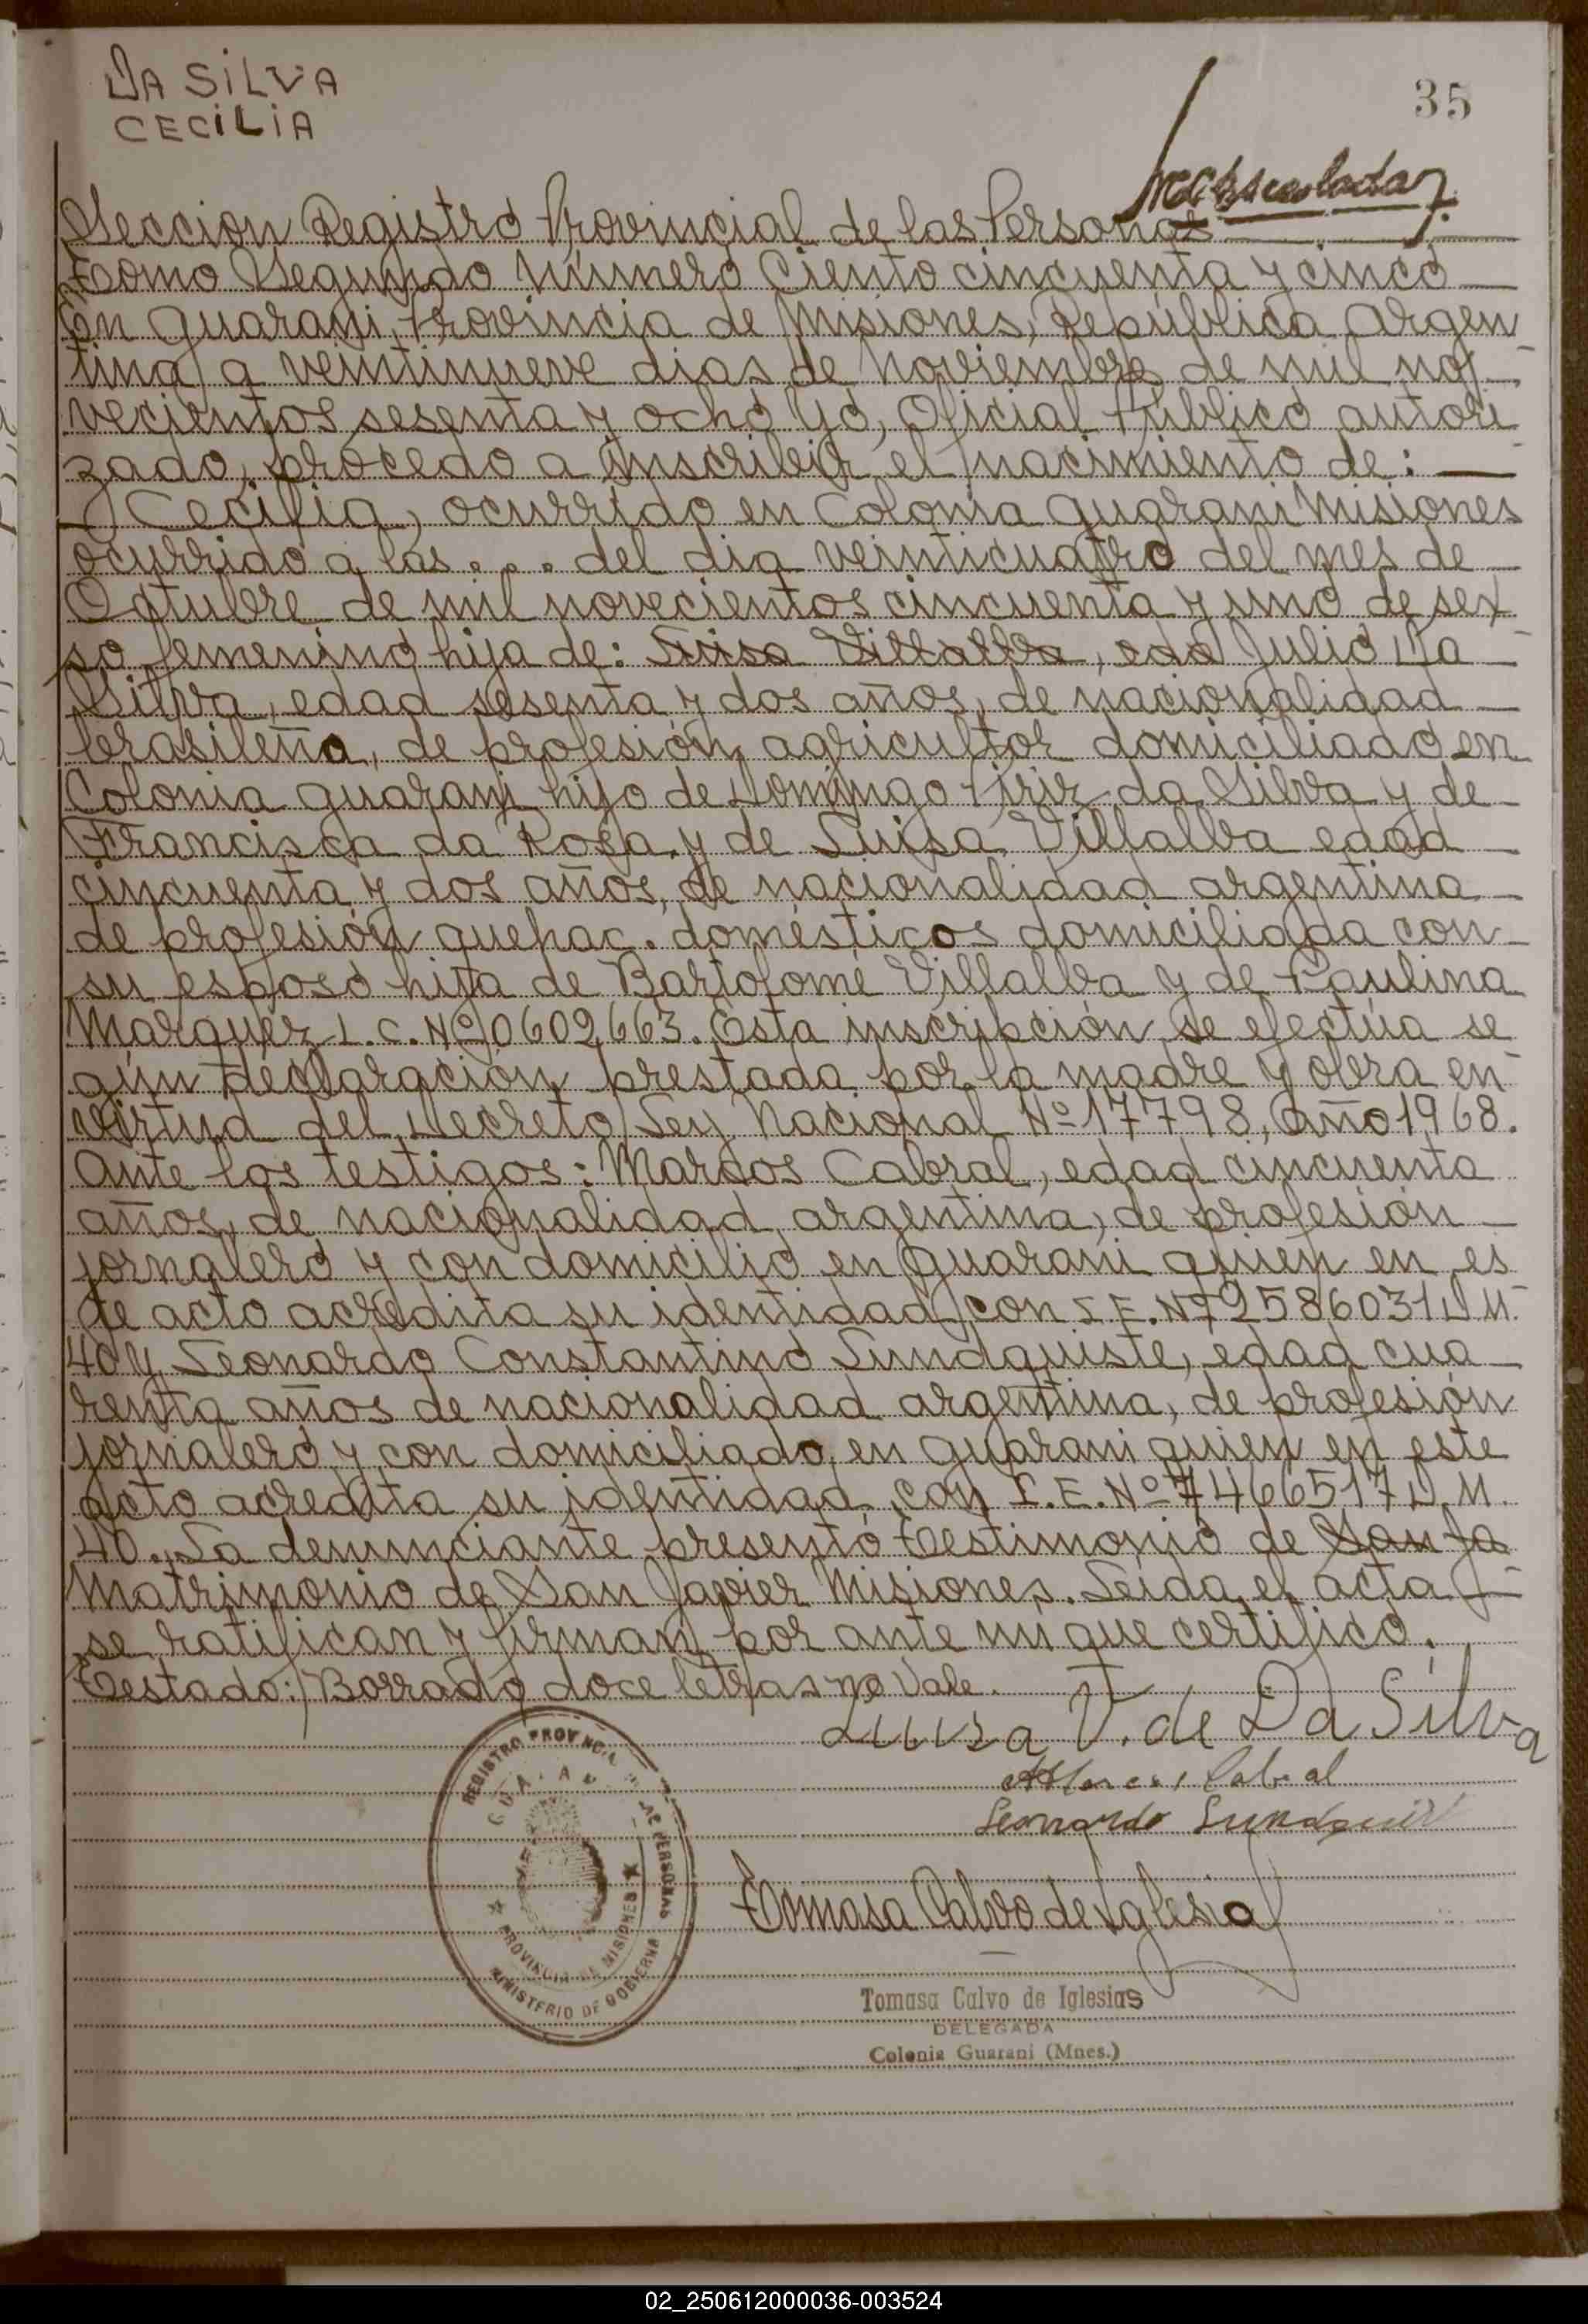 DA SILVA
CECILIA
35
Matriculada
Sección Registro Provincial de las Personas
Tomo Segundo Número Ciento cincuenta y cinco
En Guaraní, Provincia de Misiones, República Argen
tina a veintinueve dias de Noviembre de mil no
vecientos sesenta y ocho Yo, Oficial Público autori
zado, procedo a inscribir el nacimiento de:
Cecilia, ocurrido en Colonia Guaraní Misiones
ocurrido a las . . . del dia veinticuatro del mes de
Octubre de mil novecientos cincuenta y uno de sex
so femenino hija de: Luisa Villalba, eda Julio Da
Silva, edad sesenta y dos años, de nacionalidad
brasileña, de profesión agricultor domiciliado en
Colonia Guaraní hijo de Domingo da Silva y de
Francisca da Rosa y de Luisa Villalba edad
cincuenta y dos años, de nacionalidad argentina
de profesión quehac. domésticos domiciliada con
su esposo hija de Bartolomé Villalba y de Paulina
Marquez L.C. Nº 0602663. Esta inscripción se efectúa se
gún declaración prestada por la madre y obra en
virtud del Decreto Ley Nacional Nº 17798, Año 1968.
Ante los testigos: Marcos Cabral, edad cincuenta
años, de nacionalidad argentina, de profesión
jornalero y con domicilio en Guaraní quien en es
te acto acredita su identidad con L.E. Nº 2586031 D.M.
40 y Leonardo Constantino Lundquiste, edad cua
renta años de nacionalidad argentina, de profesión
jornalero y con domiciliado en Guaraní quien en este
acto acredita su identidad con L.E. Nº 7466517 D.M.
40. La denunciante presentó Testimonio de San Ja
Matrimonio de San Javier Misiones. Leida el acta
se ratifican y firman por ante mi que certifico.
Testado: Borrado doce letras no Vale.
Luisa V. de Da Silva
Marcos Cabral
Leonardo Lundquist
REGISTRO PROVINCIAL DE LAS PERSONAS
GUARANI
PROVINCIA DE MISIONES
MINISTERIO DE GOBIERNO
Tomasa Calvo de Iglesias
Tomasa Calvo de Iglesias
DELEGADA
Colonia Guarani (Mnes.)
02_250612000036-003524